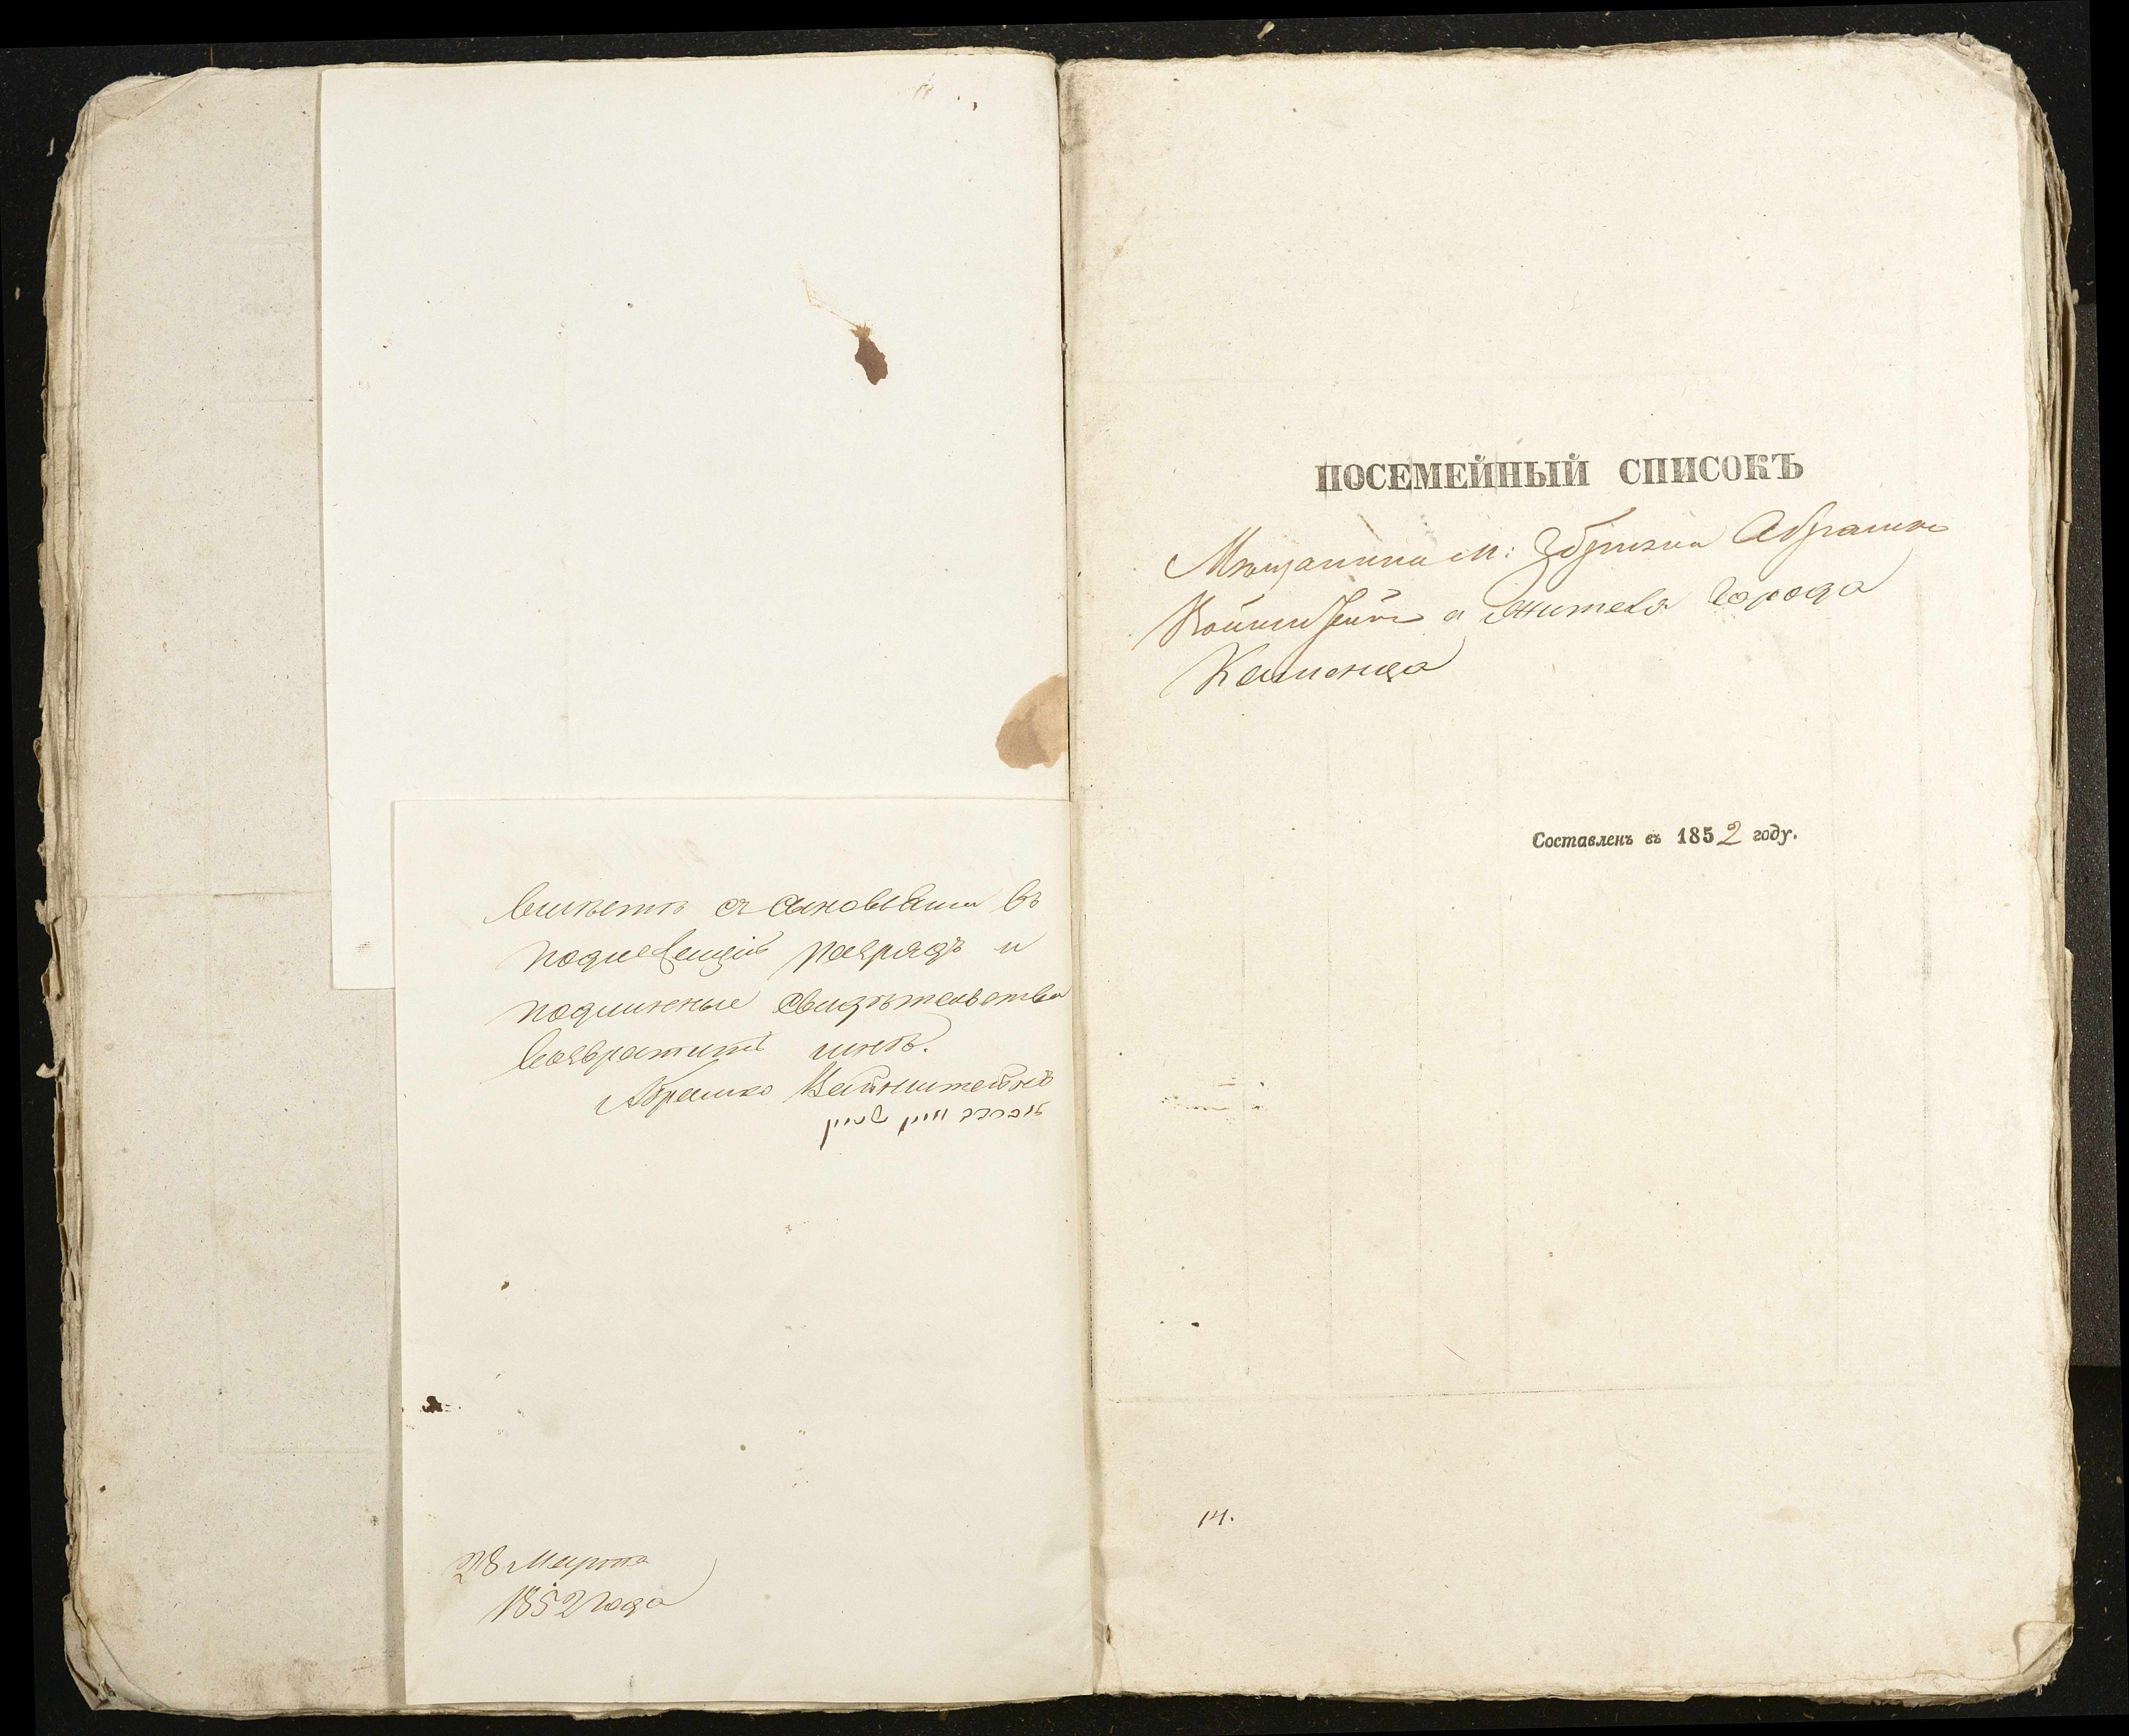 вмѣстѣ съ сыновьями въ
подлежащій разрядъ и
подлинные свидѣтельства
возвратить мнѣ.
Абрамко Вайнштейнъ
אברהם וויין שטיין
28 Марта
1852 года
ПОСЕМЕЙНЫЙ СПИСОКЪ
Мѣщанина м: Збрижа Абрамки
Вайнштейна жителя города
Каменца
Составленъ въ 1852 году.
14.